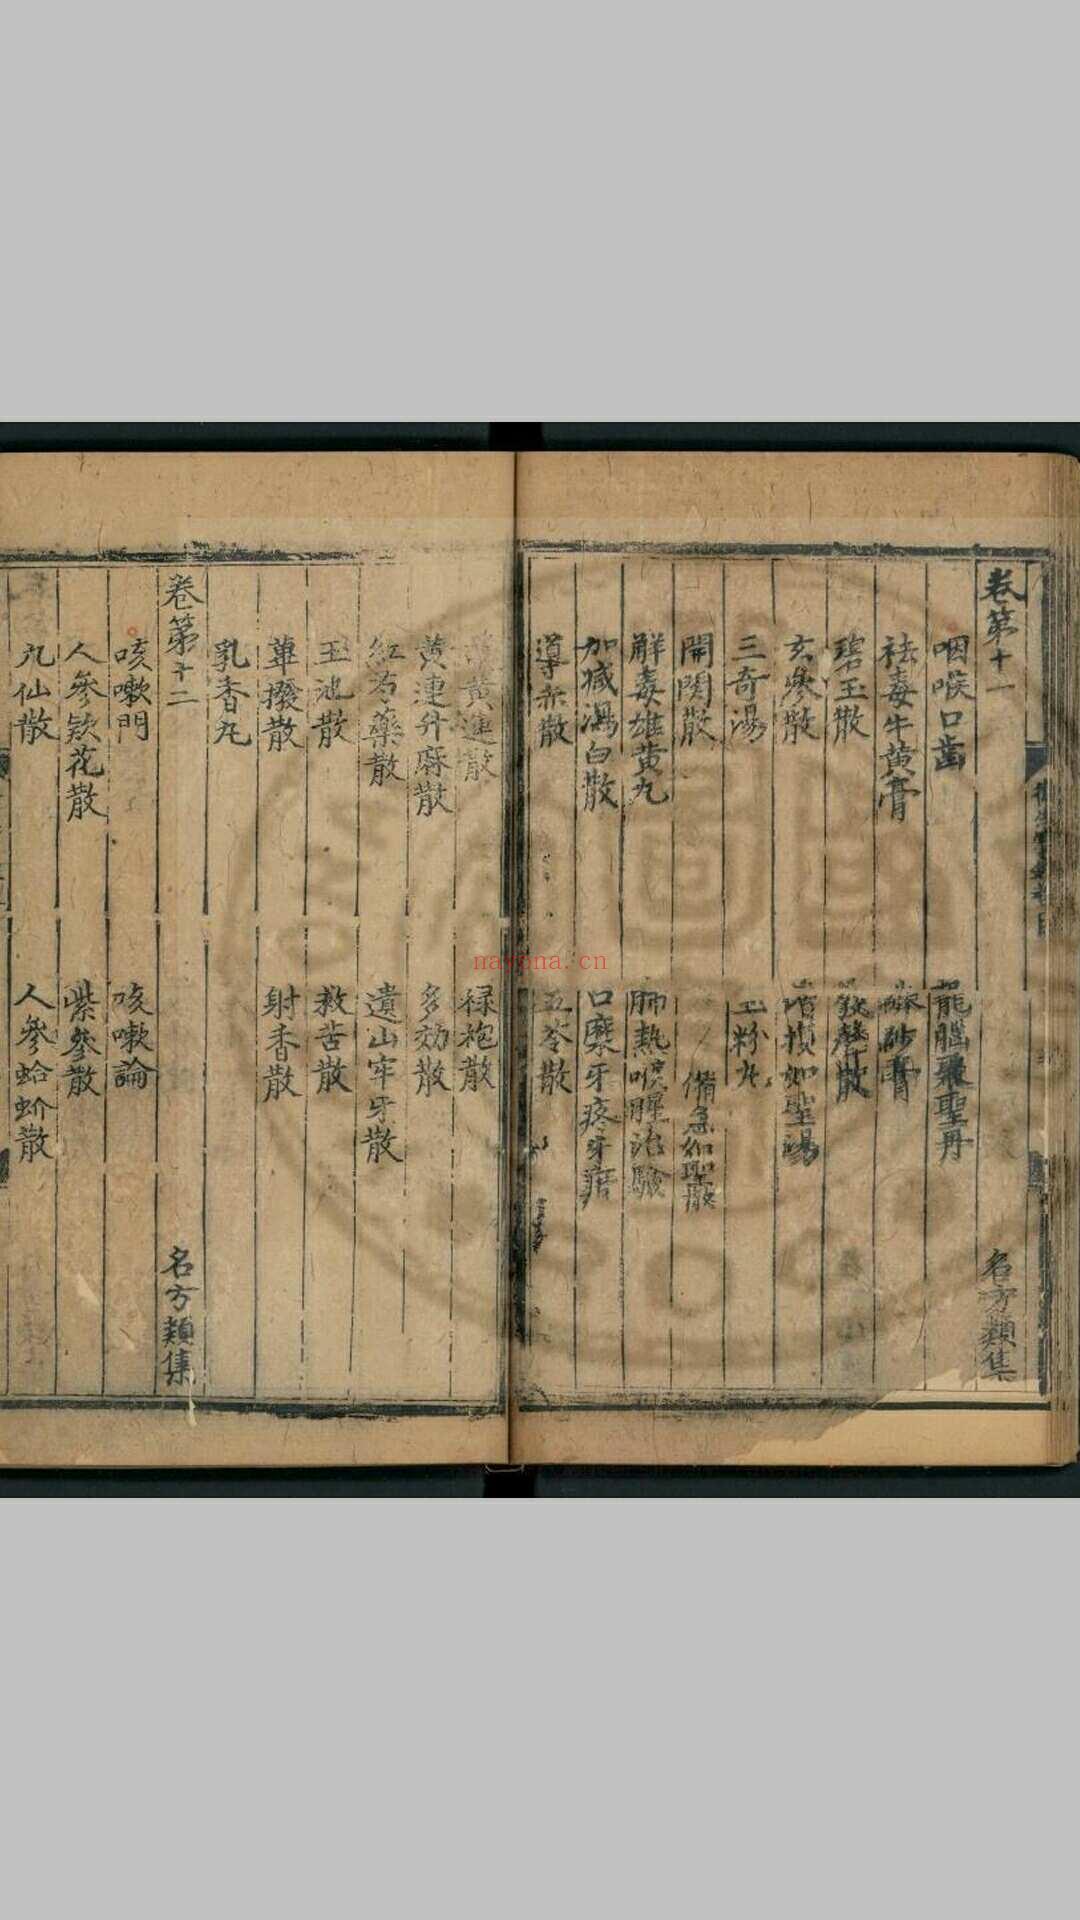 卷第十一
名方類集
咽喉口齒
龍腦聚聖丹
祛毒牛黄膏
砂膏
碧玉散
散
玄參散
增損如聖湯
三奇湯
玉粉丸
開關散
備急如聖散
解毒雄黄丸
肺熱喉腥治驗
加减瀉白散
口糜牙疼牙疳
導赤散
五苓散
黄連散
緑袍散
黄連升麻散
多効散
紅芍藥散
遺山牢牙散
玉池散
救苦散
蓽撥散
射香散
乳香丸
卷第十二
名方類集
咳嗽門
咳嗽論
人參欵花散
紫參散
九仙散
人參蛤蚧散
nayona.cn